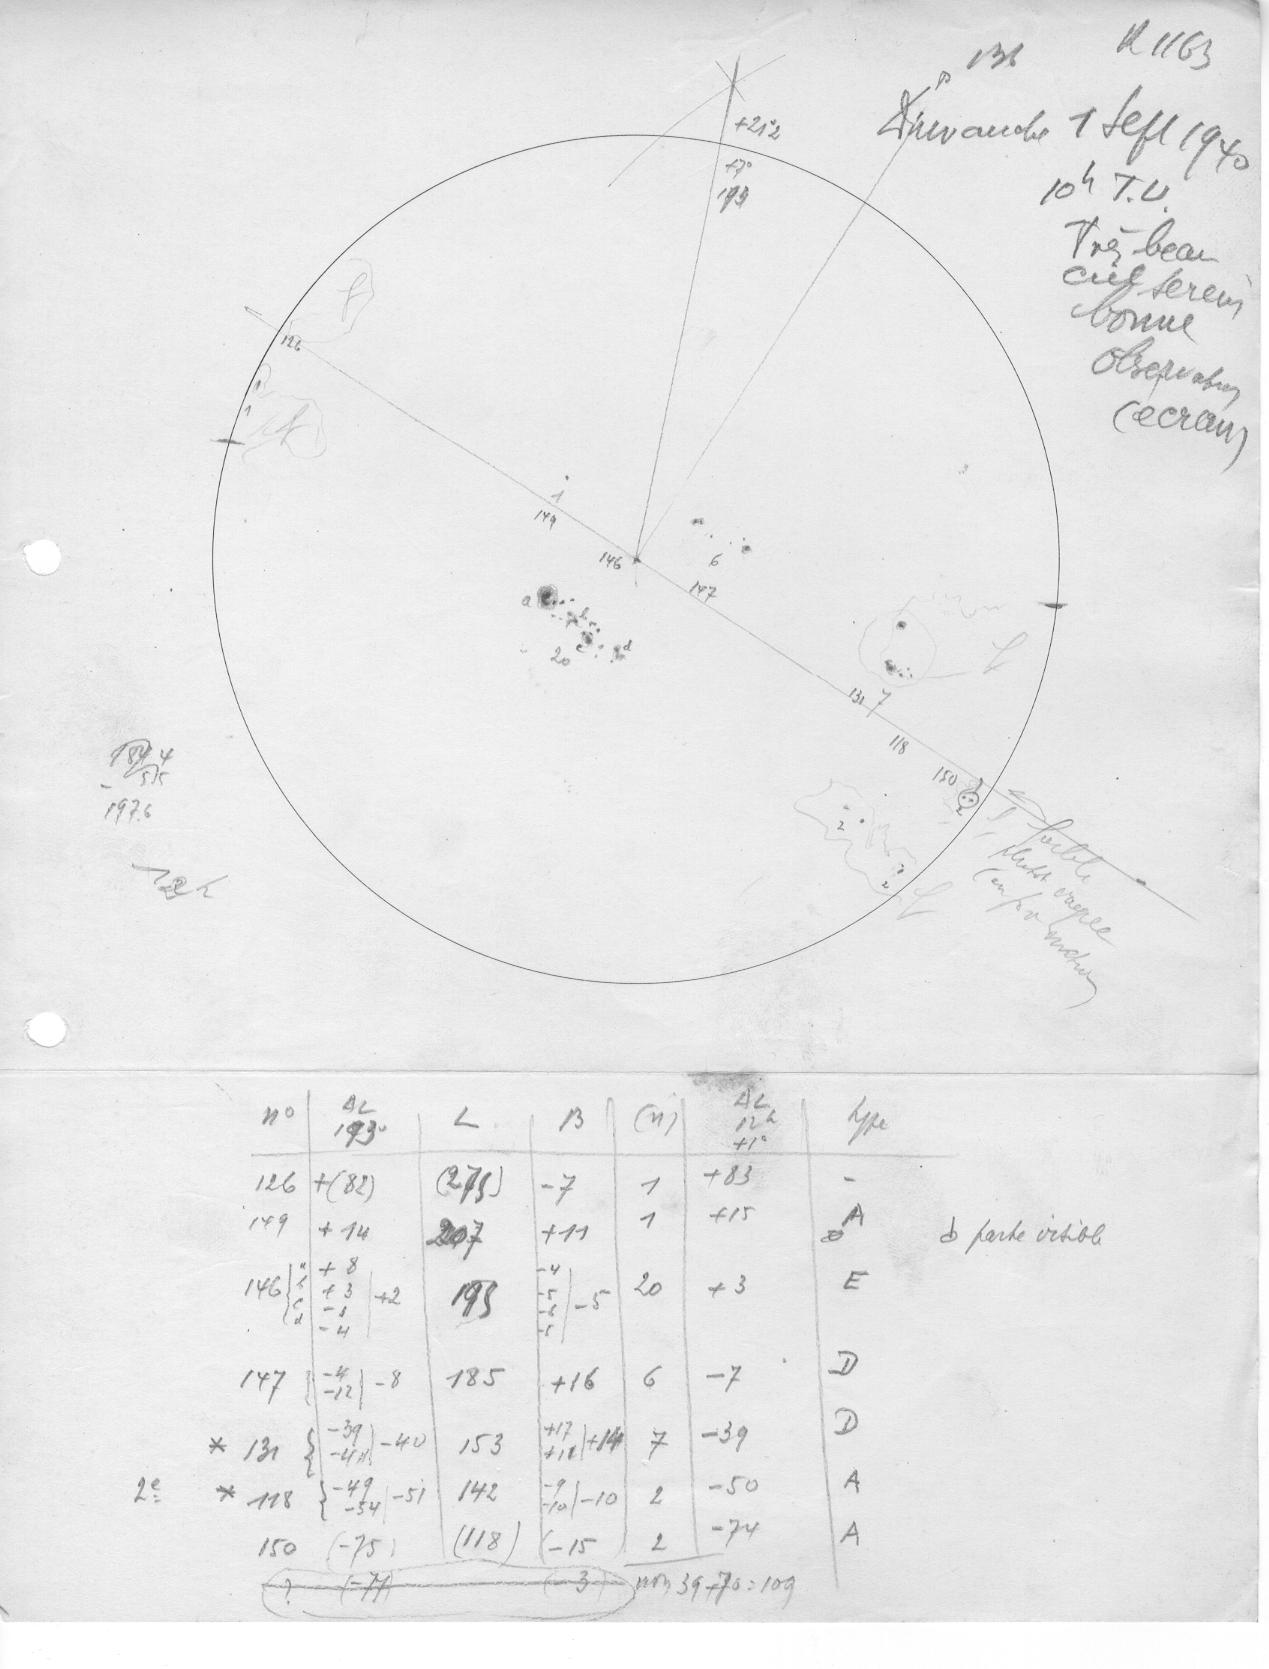 R 1163
136
P
Dimanche 1 Sept 1940
10h T.U.
Très beau
ciel serein
bonne
observation
(écran)
+21°2
+7°
193
f
126
1
f
1
149
146
6
147
a
b
c
d
20
f
131 7
118
150
2
2
2
f
faible
197.6
n° | ΔL 193° | L | B | (n) | ΔL 12h +1° | type
126 | +(82) | (275) | -7 | 1 | +83 | -
149 | +14 | 207 | +11 | 1 | +15 | A
parte visible
146 { a b c d | +8 +3 -1 -4 | +2 | 195 | -4 -5 -6 -5 | -5 | 20 | +3 | E
147 { -4 -12 | -8 | 185 | +16 | 6 | -7 | D
* 131 { -39 -41 | -40 | 153 | +17 +12 | +14 | 7 | -39 | D
2e * 118 { -49 -54 | -51 | 142 | -9 -10 | -10 | 2 | -50 | A
150 | (-75) | (118) | (-15 | 2 | -74 | A
? (-71) (-3) non 39+70=109